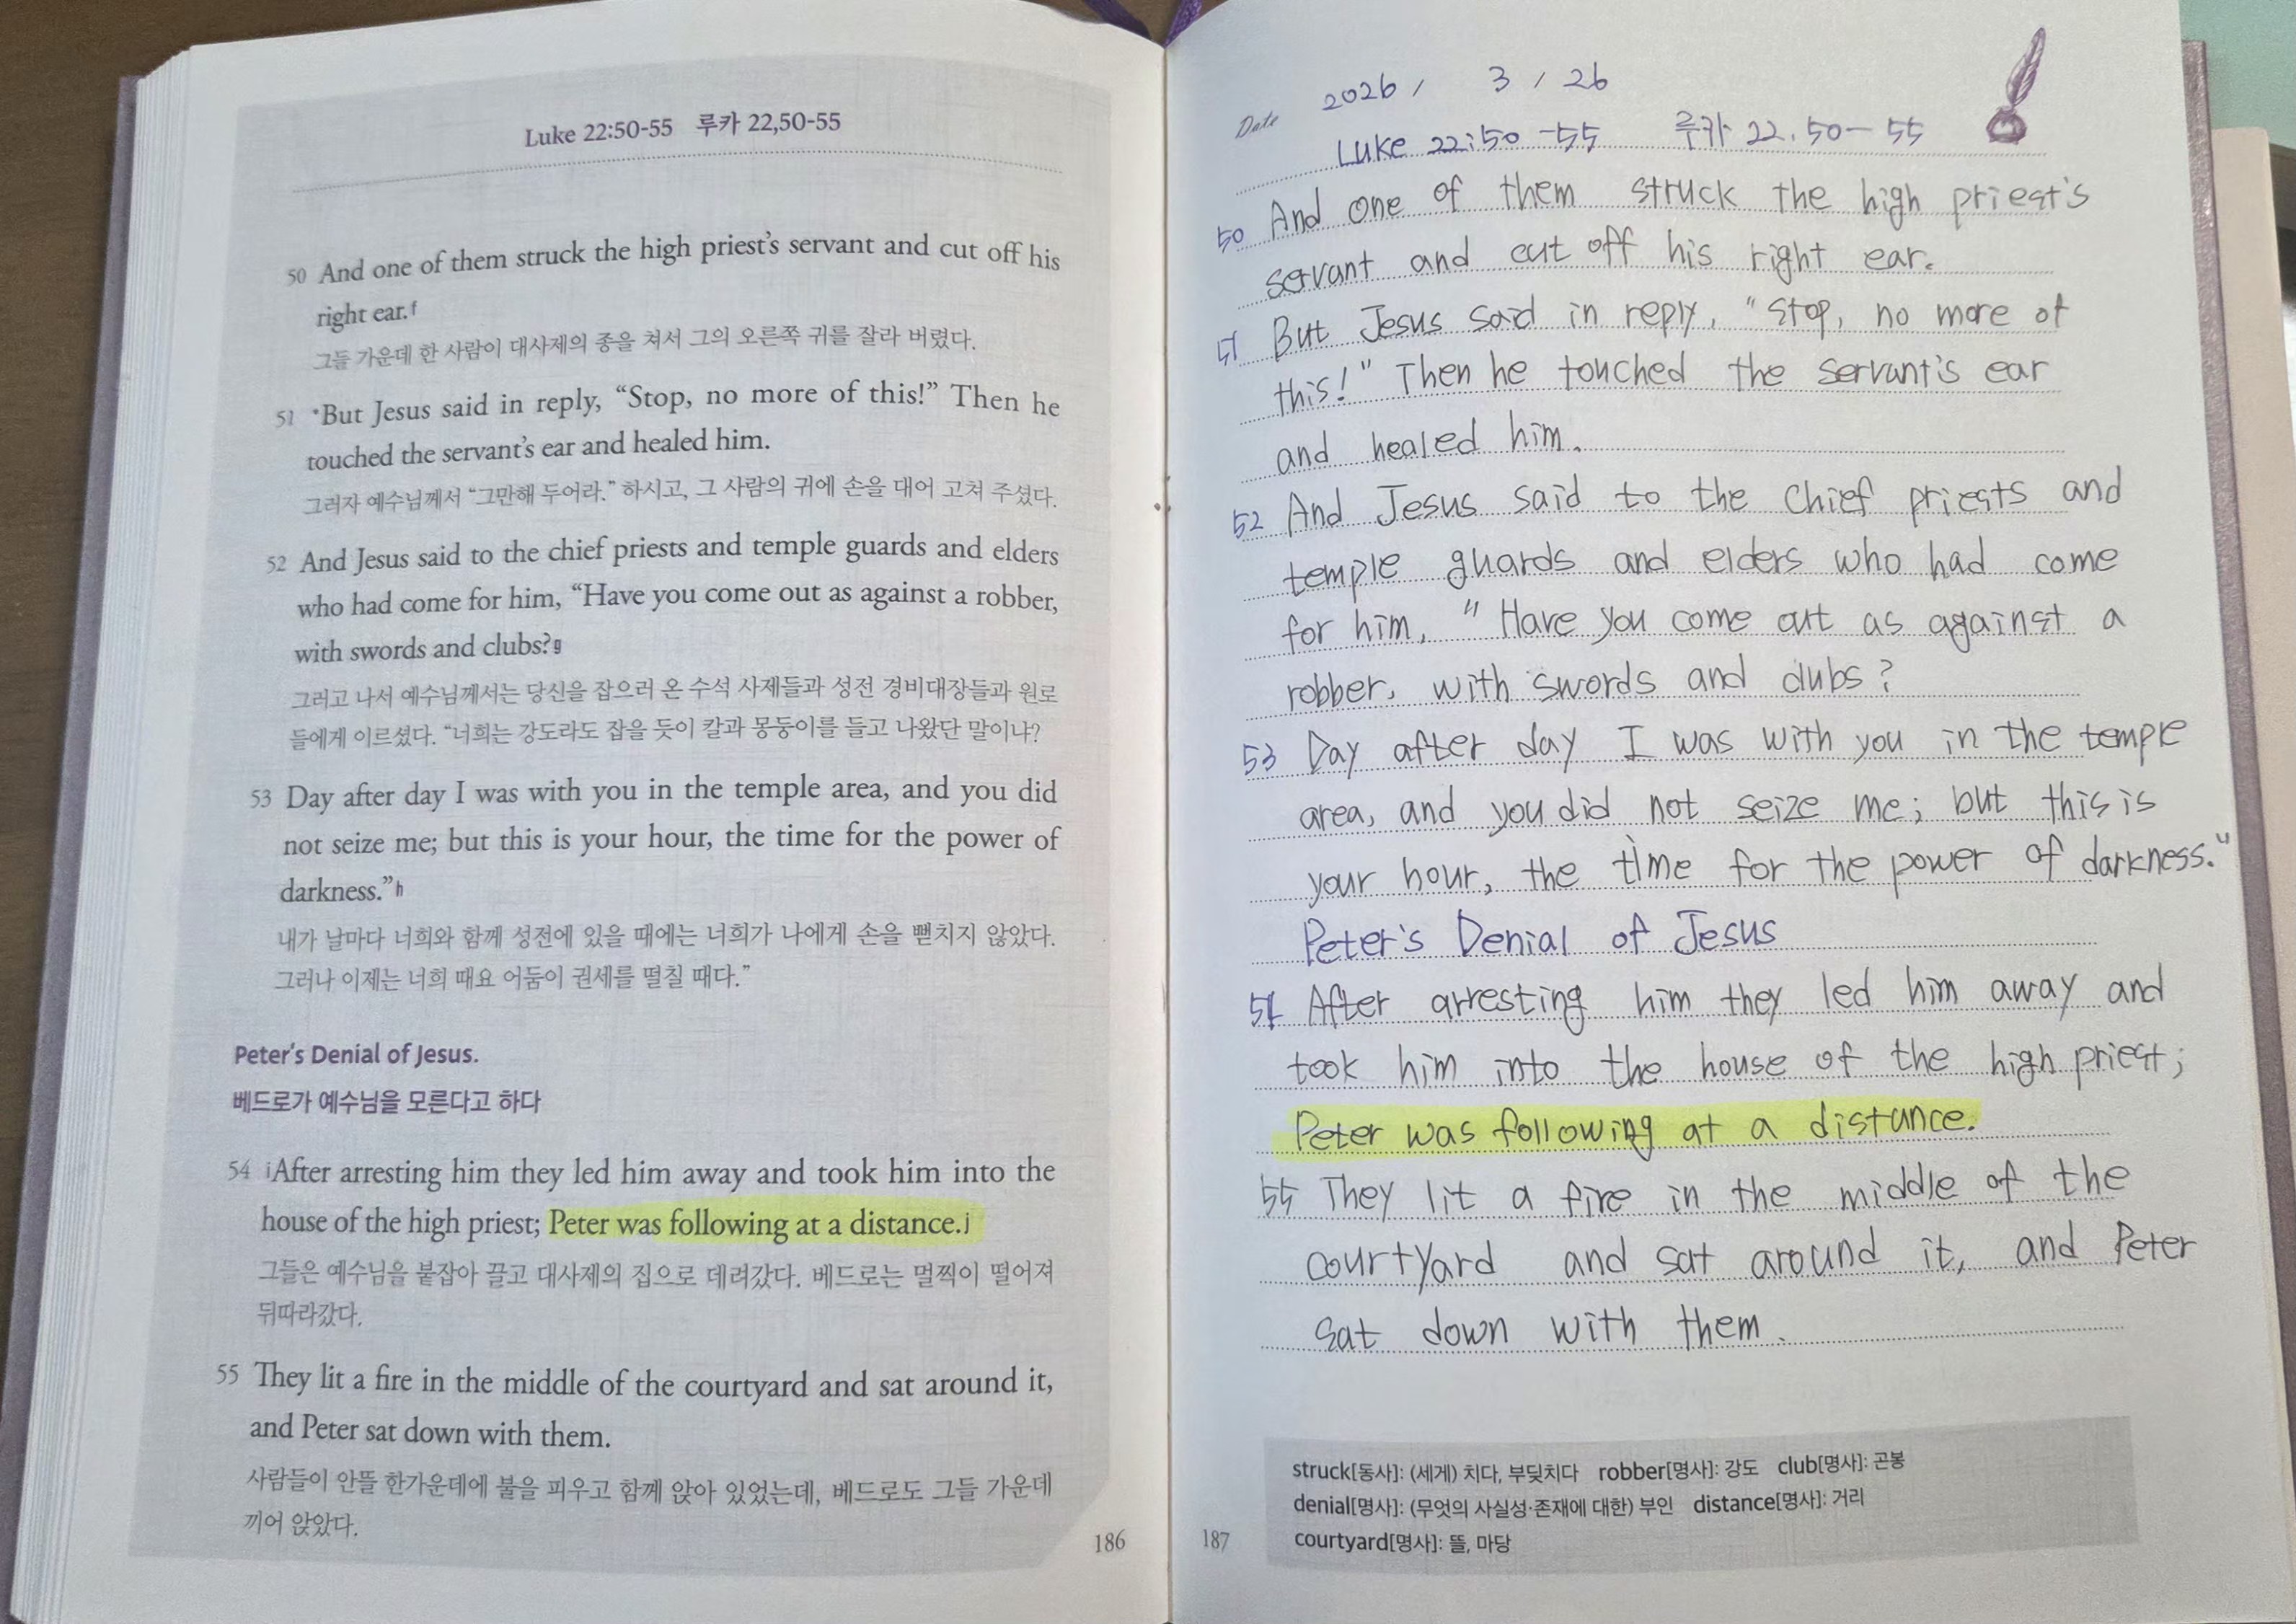 Luke 22:50-55 루카 22,50-55
50 And one of them struck the high priest's servant and cut off his
right ear.f
그들 가운데 한 사람이 대사제의 종을 쳐서 그의 오른쪽 귀를 잘라 버렸다.
51 *But Jesus said in reply, “Stop, no more of this!” Then he
touched the servant's ear and healed him.
그러자 예수님께서 “그만해 두어라.” 하시고, 그 사람의 귀에 손을 대어 고쳐 주셨다.
52 And Jesus said to the chief priests and temple guards and elders
who had come for him, “Have you come out as against a robber,
with swords and clubs?g
그러고 나서 예수님께서는 당신을 잡으러 온 수석 사제들과 성전 경비대장들과 원로
들에게 이르셨다. “너희는 강도라도 잡을 듯이 칼과 몽둥이를 들고 나왔단 말이냐?
53 Day after day I was with you in the temple area, and you did
not seize me; but this is your hour, the time for the power of
darkness.”h
내가 날마다 너희와 함께 성전에 있을 때에는 너희가 나에게 손을 뻗치지 않았다.
그러나 이제는 너희 때요 어둠이 권세를 떨칠 때다.”
Peter's Denial of Jesus.
베드로가 예수님을 모른다고 하다
54 iAfter arresting him they led him away and took him into the
house of the high priest; Peter was following at a distance.j
그들은 예수님을 붙잡아 끌고 대사제의 집으로 데려갔다. 베드로는 멀찍이 떨어져
뒤따라갔다.
55 They lit a fire in the middle of the courtyard and sat around it,
and Peter sat down with them.
사람들이 안뜰 한가운데에 불을 피우고 함께 앉아 있었는데, 베드로도 그들 가운데
끼어 앉았다.
186
Date 2026 / 3 / 26
Luke 22:50-55 루카 22.50-55
50 And one of them struck the high priest's
servant and cut off his right ear.
51 But Jesus said in reply, "Stop, no more of
this!" Then he touched the servant's ear
and healed him.
52 And Jesus said to the chief priests and
temple guards and elders who had come
for him, "Have you come out as against a
robber, with swords and clubs?
53 Day after day I was with you in the temple
area, and you did not seize me; but this is
your hour, the time for the power of darkness."
Peter's Denial of Jesus
54 After arresting him they led him away and
took him into the house of the high priest;
Peter was following at a distance.
55 They lit a fire in the middle of the
courtyard and sat around it, and Peter
sat down with them.
struck[동사]: (세게) 치다, 부딪치다 robber[명사]: 강도 club[명사]: 곤봉
denial[명사]: (무엇의 사실성·존재에 대한) 부인 distance[명사]: 거리
courtyard[명사]: 뜰, 마당
187